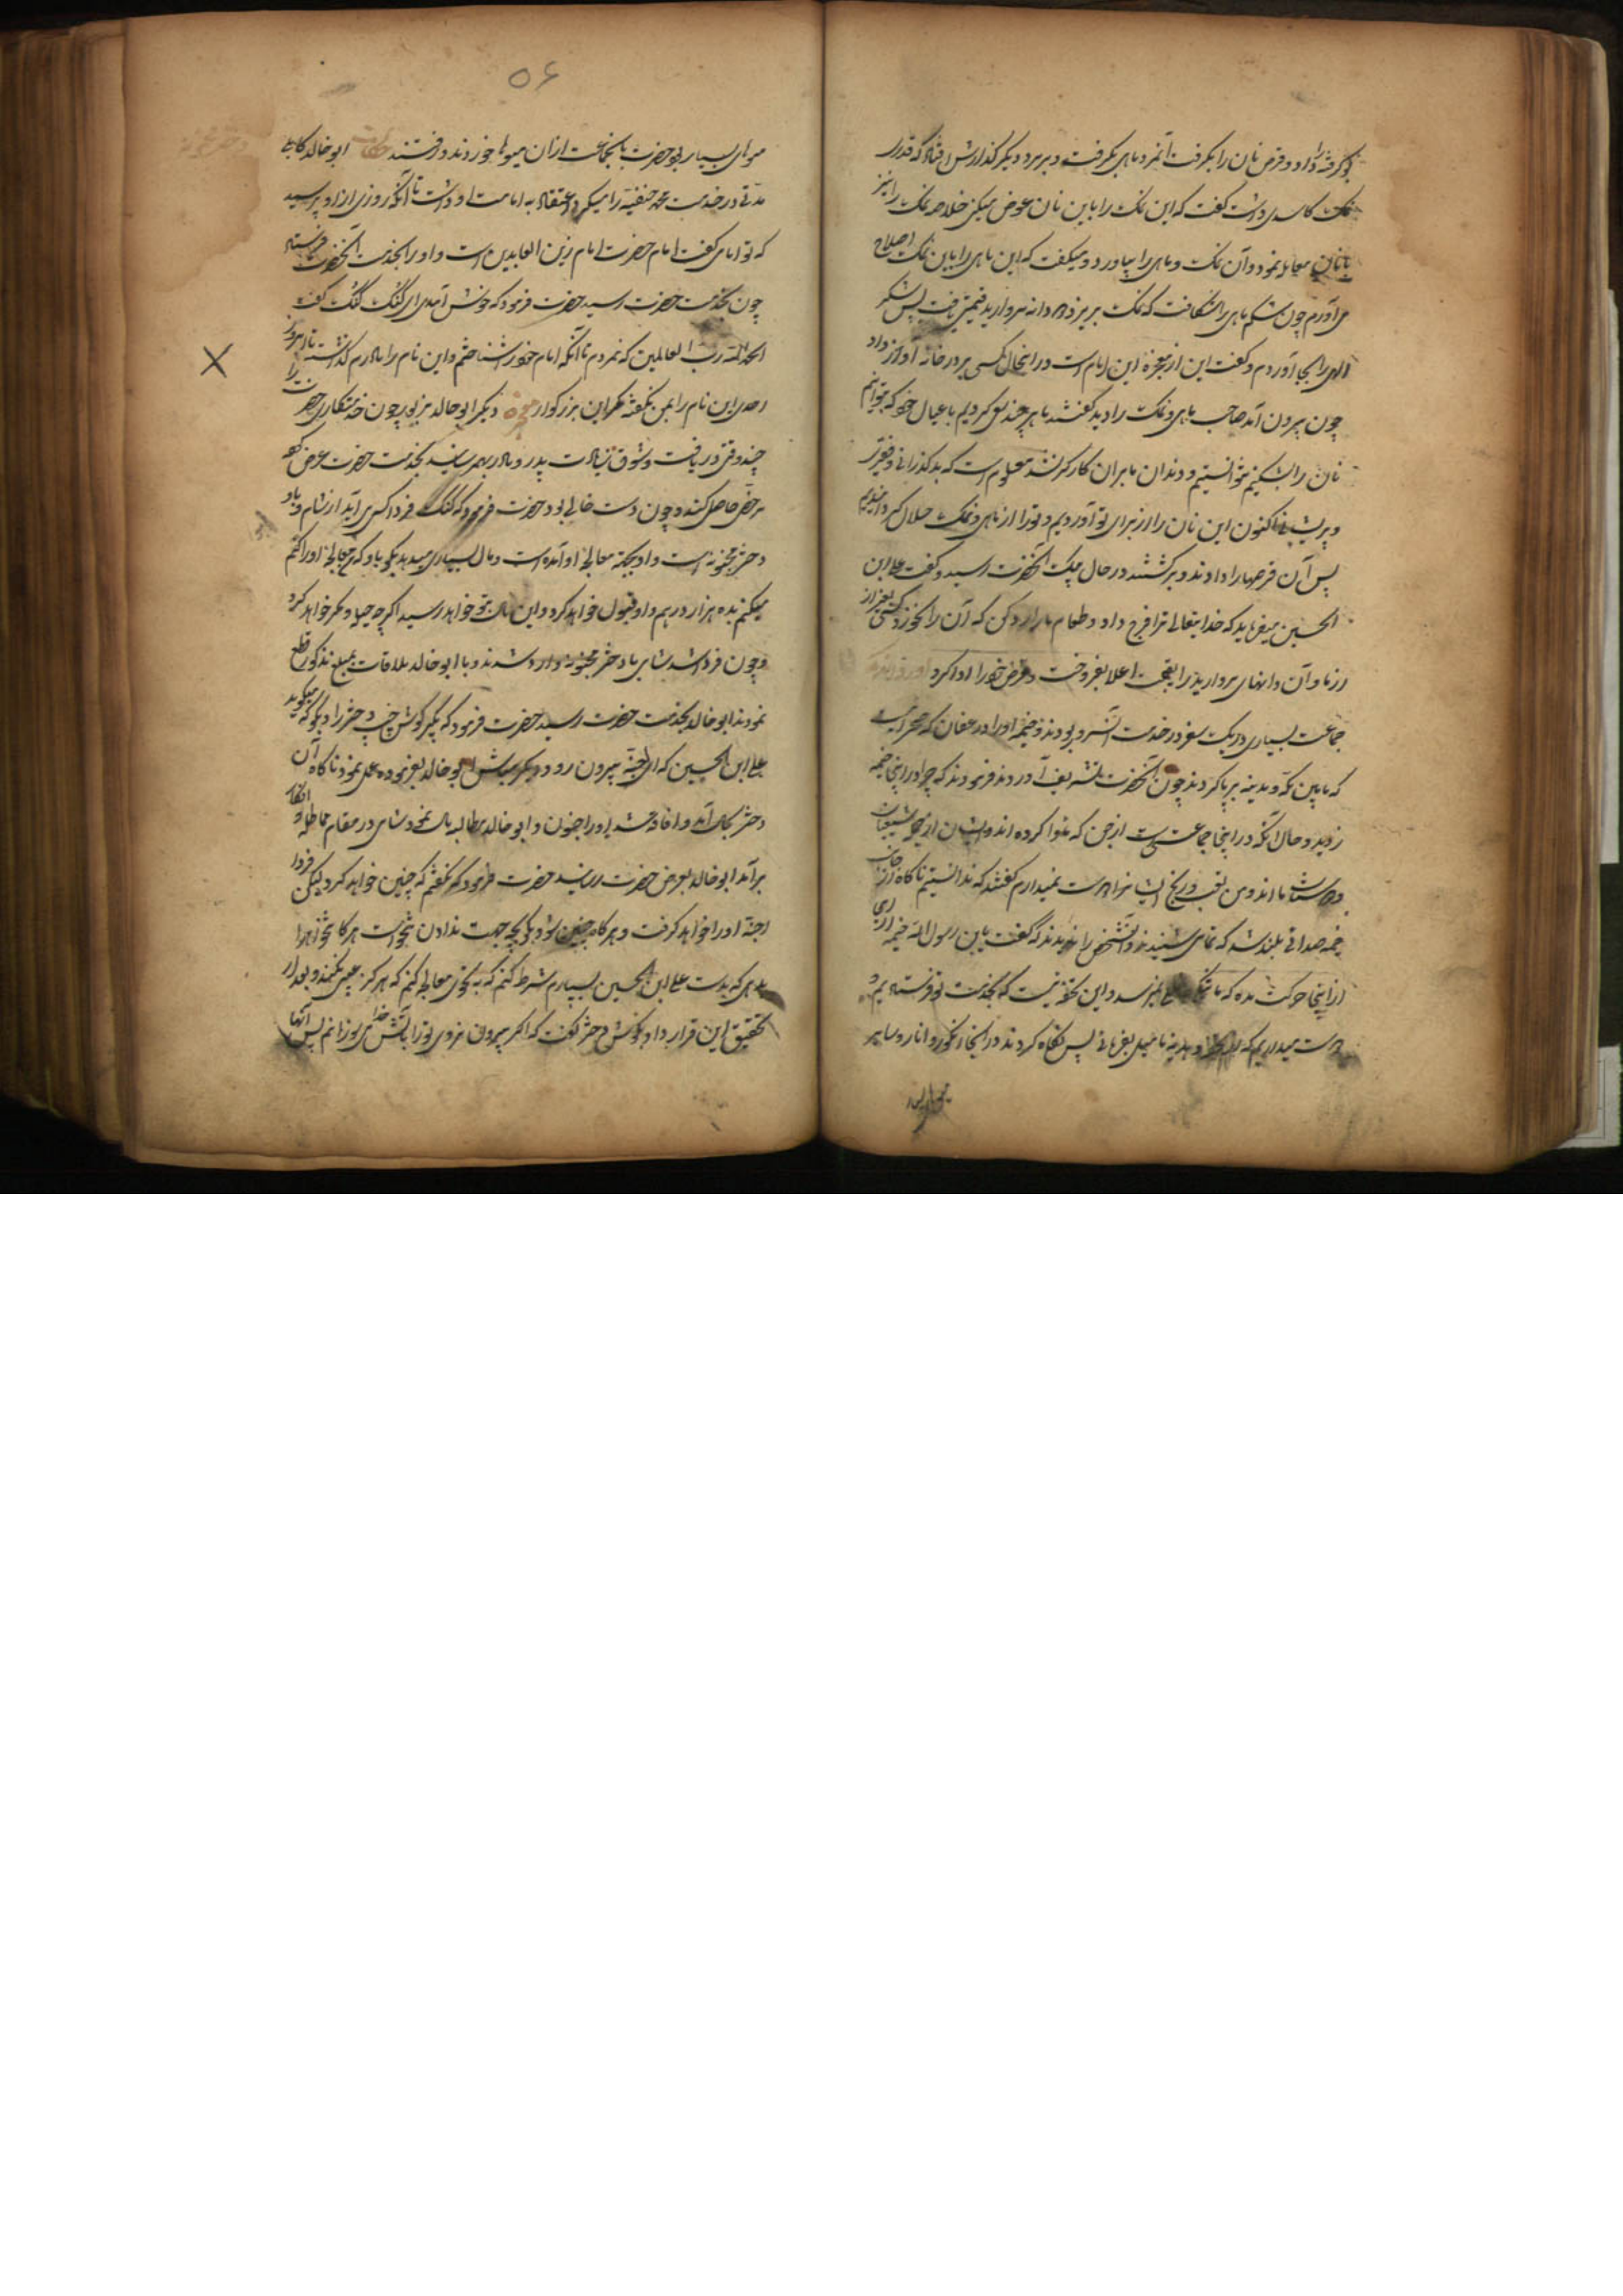 بو گرفته را داد و قرص نان را بگرفت آنمرد ماهی بگرفت و ببرد و دیگر گذارش افتاد که قدری
نمک کاسدی داشت گفت که این نمک را باین نان عوض میکنی خلاصه نمک را نیز
با نان معامله نمود و آن نمک و ماهی را بیاورد و میگفت که این ماهی را باین نمک اصلاح
می آورم چون شکم ماهی را بشکافت که نمک بریزد دو دانه مروارید قیمتی یافت پس شکر
الهی را بجا آوردم و گفت این از معجزه این امام است در اینحال کسی بر در خانه آواز داد
چون بیرون آمد صاحب ماهی و نمک را دید گفتند ما هر چند سعی کردیم با عیال خود که بتوانیم
نان را بشکنیم نتوانستیم و دندان ما بران کارگر نشد معلوم است که بد گذرانی و فقیر
و پریشانی اکنون این نان را از برای تو آوردیم و تو را از ماهی و نمک حلال گردانیدیم
پس آن قرصها را دادند و برگشتند در حال پیک آنحضرت رسید و گفت علی ابن
الحسین میفرماید که خدایتعالی ترا فرج داد و طعام ما را رد کن که آن را نخورد کسی بغیر از
ما و آن دانهای مروارید را بقیمت اعلا بفروخت و قرض خود را ادا کرد
جماعت بسیاری در یک سفر در خدمت آنسرور بودند و خیمه او را در عسفان که صحرائیست
که مابین مکه و مدینه برپا کردند چون آنحضرت تشریف آوردند فرمودند که چرا در اینجا خیمه
زدید و حال آنکه در اینجا جماعتی است از جن که ماوا کرده اند و ایشان از شیعیان
و دوستان ما اند و من تعب و رنج ایشانرا دوست نمیدارم گفتند که ندانستیم ناگاه از جانب
خیمه صدائی بلند شد که تمامی شنیدند و آنشخص را ندیدند که گفت یابن رسول الله خیمه را
از اینجا حرکت مده که ما تنگی نمیرسد و این تحفه ایست که بخدمت تو فرستاده ایم و
دوست میداریم که از هدیه ما میل بفرمائی پس نگاه کردند در اینجا انگور و انار و سایر
میوهای بسیار
۵۶
میوهای بسیار بود حضرت با جماعت از ان میوها خوردند و رفتند حکایت ابو خالد کابلی
مدتی در خدمت محمد حنفیه را میکرد و اعتقاد به امامت او داشت تا آنکه روزی از او پرسید
که تو امامی گفت امام حضرت امام زین العابدین است و او را بخدمت آنحضرت فرستاد
چون بخدمت حضرت رسید حضرت فرمود که خوش آمدی ای کنگر کنگر گفت
الحمد لله رب العالمین که نمردم تا آنکه امام خود را شناختم و این نام را مادرم گذاشته تا امروز
احدی این نام را بمن نگفته مگر این بزرگوار معجزه دیگر ابو خالد مزبور چون خدمتکاری حضرت را
چند وقتی دریافت و شوق زیارت پدر و مادر بهم رسانید بخدمت حضرت عرض کرد
مرخصی حاصل کند و چون دست خالی بود حضرت فرمود که کنگر فردا کسی می آید از شام و با او
دختر مجنونه است و او بجهة معالجۀ او آمده است و مال بسیاری میدهد بگو باو که من معالجۀ او را
میکنم بده هزار درهم و او قبول خواهد کرد و این مال بتو خواهد رسید اگر چه حیله و مکر خواهد کرد
و چون فردا شد شامی با دختر مجنونه وارد شدند و با ابو خالد ملاقات بمبلغ مذکور قطع
نمودند ابو خالد بخدمت حضرت رسید حضرت فرمود که بگیر گوش چپ دختر را و بگو که میگوید
علی ابن الحسین که ای اجنّه بیرون رو و دیگر مباش ابو خالد بفرموده عمل نمود ناگاه آن
دختر بحال آمد و افاقه شد او را جنون و ابو خالد مطالبه مال نمود و شامی در مقام مماطله و انکار
برآمد ابو خالد بعرض حضرت رسانید حضرت فرمود که نگفتم که چنین خواهد کرد لیکن فردا
اجنّه او را خواهد گرفت و هر گاه چنین شود بگو که بجهت ندادن تنخواست هر گاه تنخواه را
بدهی که بدست علی ابن الحسین بسپارم شرط کنم که به نحوی معالجه کنم که هرگز عیبی نکند و بعد از
تحقیق این قرار داد بگوش دختر گفت که اگر بیرون نروی تو را بآتش خدا می سوزانم پس آنها